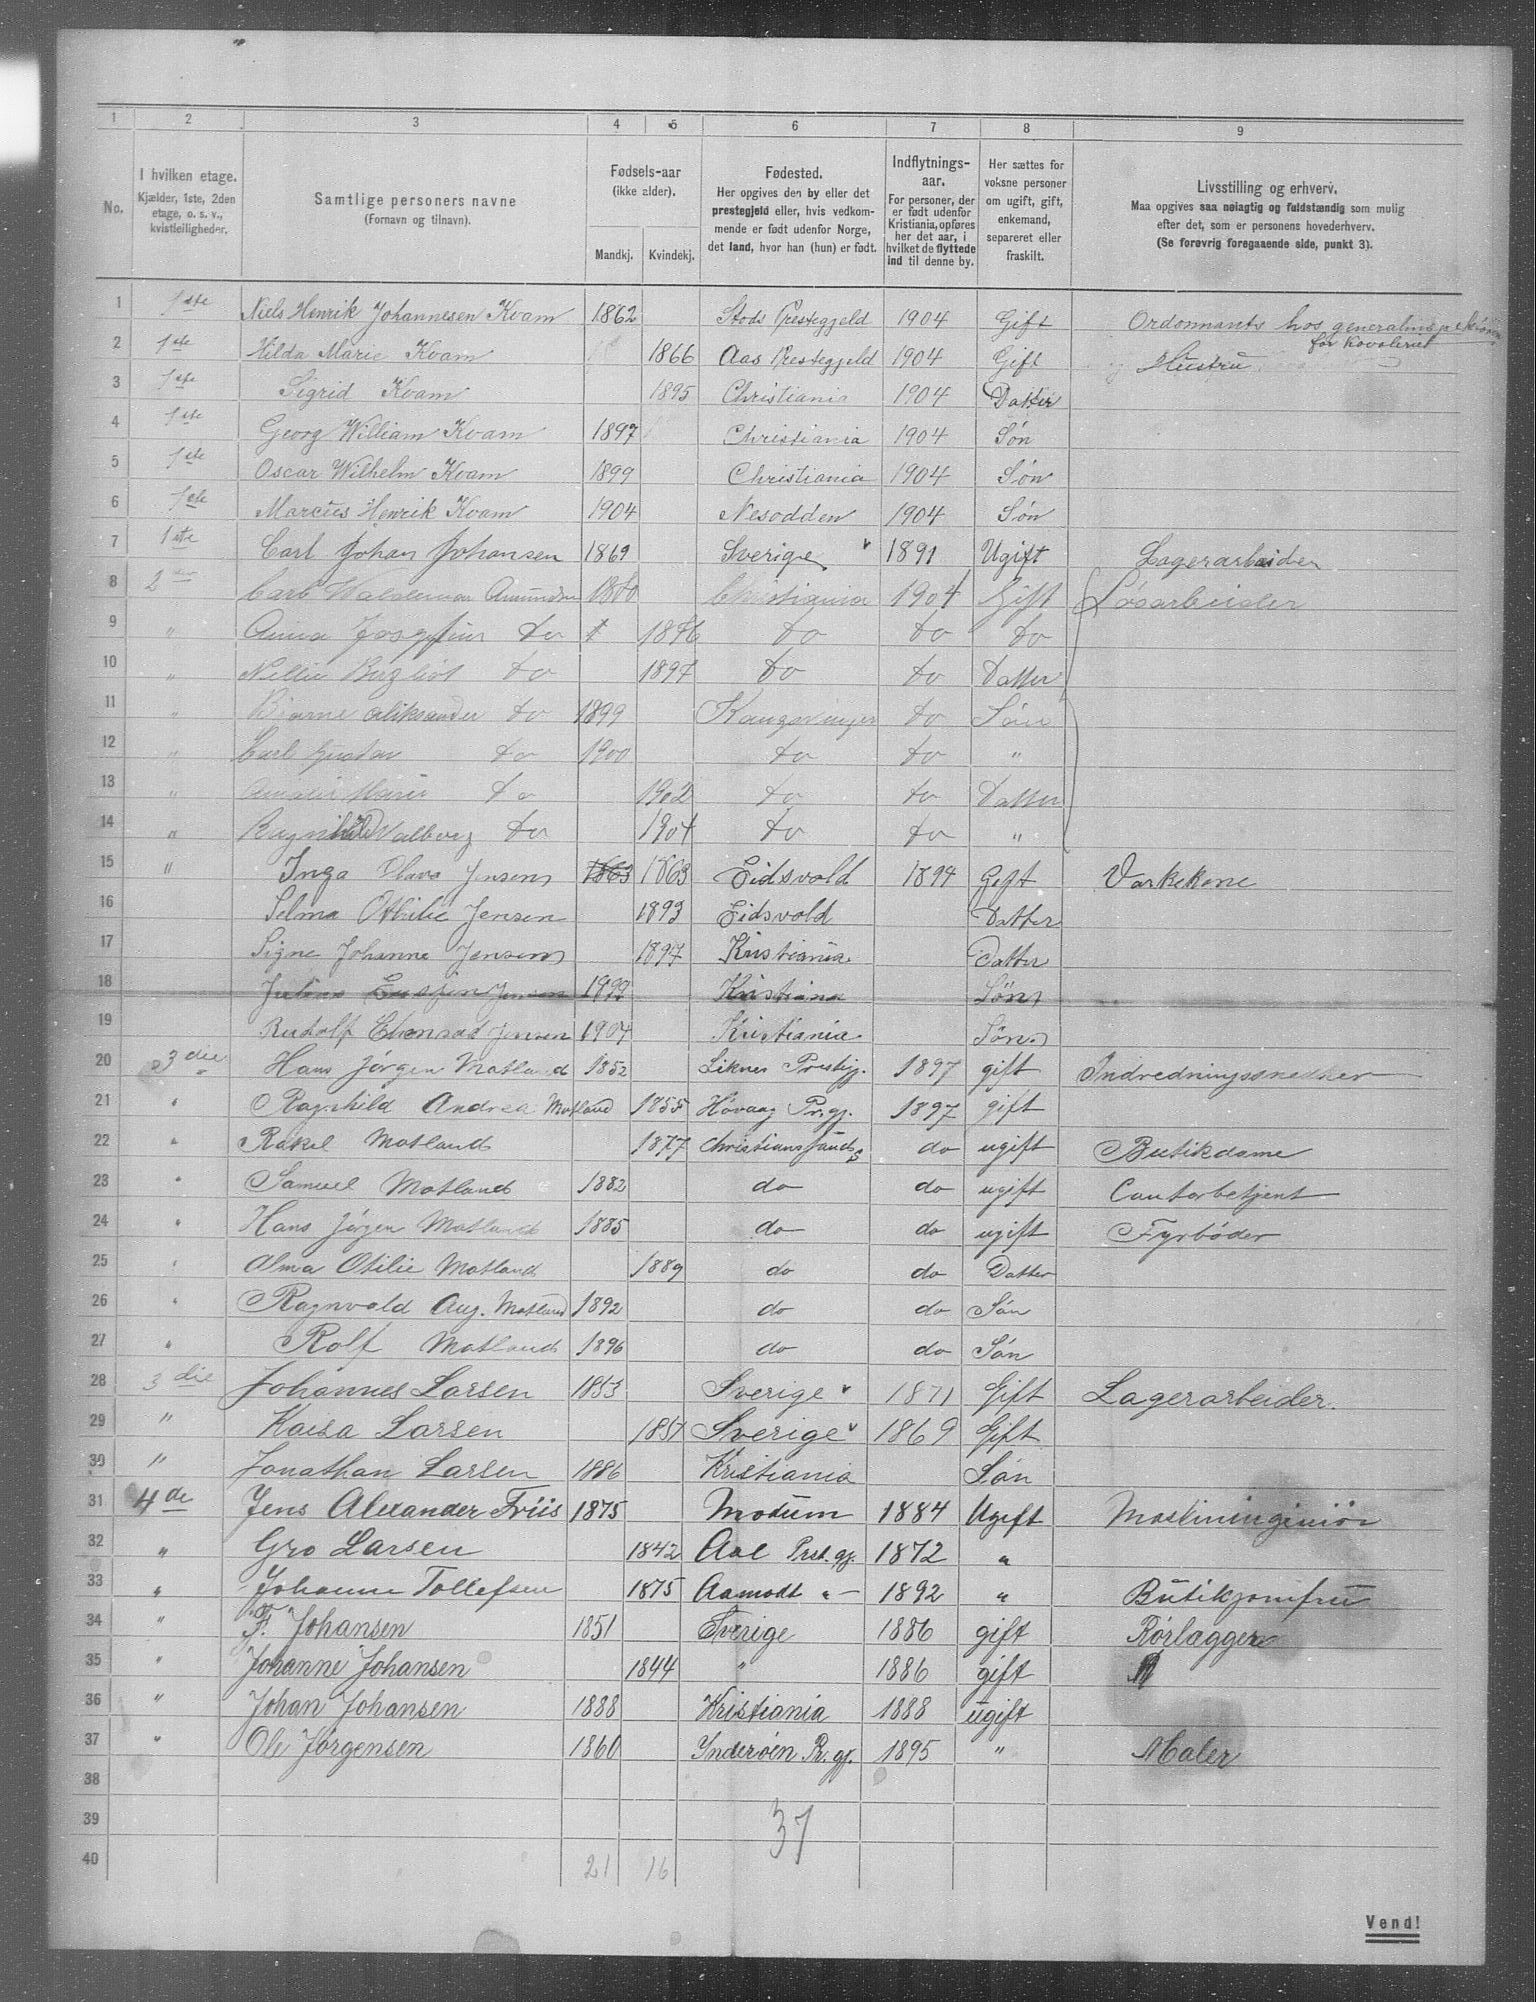 1 2 3 4 5 6 7 8 9
No.
I hvilken etage. Kjælder, 1ste, 2den etage, o. s. v., kvistleiligheder.
Samtlige personers navne (Fornavn og tilnavn).
Fødsels-aar (ikke alder). Mandkj. Kvindekj.
Fødested. Her opgives den by eller det prestegjeld eller, hvis vedkommende er født udenfor Norge, det land, hvor han (hun) er født.
Indflytnings-aar. For personer, der er født udenfor Kristiania, opføres her det aar, i hvilket de flyttede ind til denne by.
Her sættes for voksne personer om ugift, gift, enkemand, separeret eller fraskilt.
Livsstilling og erhverv. Maa opgives saa nøiagtig og fuldstændig som mulig efter det, som er personens hovederhverv. (Se forøvrig foregaaende side, punkt 3).
1 1ste Niels Henrik Johannesen Kvam 1862 Stods Prestegjeld 1904 Gift Ordonnants hos generalinspektøren for Kavaleriet
2 1ste Hilda Marie Kvam 1866 Aas Prestegjeld 1904 Gift Hustru
3 1ste Sigrid Kvam 1895 Christiania 1904 Datter
4 1ste Georg William Kvam 1897 Christiania 1904 Søn
5 1ste Oscar Wilhelm Kvam 1899 Christiania 1904 Søn
6 1ste Marcus Henrik Kvam 1904 Nesodden 1904 Søn
7 1ste Carl Johan Johansen 1869 Sverige 1891 Ugift Lagerarbeider
8 2 Carl Waldemar Amundsen Christiania 1904 Gift Løsarbeider
9 " Anna Josefine do 1876 do do do
10 " Nellie Bergliot do 1897 do do Datter
11 " Bjarne Aliksander do 1899 Kongsvinger do Søn
12 " Carl Gustav do 1900 do do "
13 " Marie do 1902 do do Datter
14 " Ragnhild Valborg do 1904 do do "
15 " Inga Olava Jensen 1863 1863 Eidsvold 1894 Gift Vaskekone
16 Selma Othilie Jensen 1893 Eidsvold Datter
17 Signe Johanne Jensen 1897 Kristiania Datter
18 Julius Jensen 1899 Kristiania Søn
19 Rudolf Jensen 1904 Kristiania Søn
20 3die Hans Jørgen Matland 1852 Liknes Prestgj. 1897 gift Indredningssnedker
21 " Ragnhild Andrea Matland 1855 Høvaag Pr.gj. 1897 gift
22 " Rakel Matland 1877 Christianssands do ugift Butikdame
23 " Samuel Matland 1882 do do ugift Contorbetjent
24 " Hans Jørgen Matland 1885 do do ugift Fyrbøder
25 " Alma Otilie Matland 1889 do do Datter
26 " Ragnvald Aug. Matland 1892 do do Søn
27 " Rolf Matland 1896 do do Søn
28 3die Johannes Larsen 1853 Sverige 1871 Gift Lagerarbeider.
29 " Kaisa Larsen 1851 Sverige 1869 Gift
30 " Jonathan Larsen 1886 Kristiania Søn
31 4de Jens Alexander Friis 1875 Modum 1884 Ugift Maskiningeniør
32 " Gro Larsen 1842 Aal Prst.gj. 1872 "
33 " Johanne Tollefsen 1875 Aamodt " 1892 " Butikjomfru
34 " F. Johansen 1851 Sverige 1886 gift Rørlægger
35 " Johanne Johansen 1844 " 1886 gift
36 " Johan Johansen 1888 Kristiania 1888 ugift
37 " Ole Jørgensen 1860 Inderøen Pr.gj. 1895 " Maler
38
39 37
40 21 16
Vend!